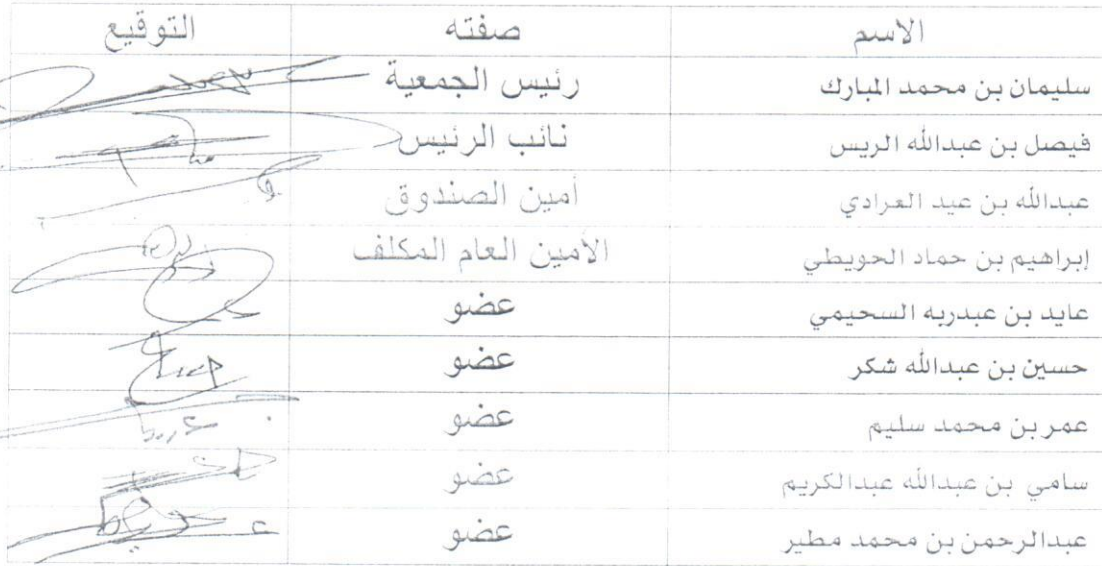 الاسم صفته التوقيع
سليمان بن محمد المبارك رئيس الجمعية
فيصل بن عبدالله الريس نائب الرئيس
عبدالله بن عيد العرادي أمين الصندوق
إبراهيم بن حماد الحويطي الأمين العام المكلف
عايد بن عبدربه السحيمي عضو
حسين بن عبدالله شكر عضو
عمر بن محمد سليم عضو
سامي بن عبدالله عبدالكريم عضو
عبدالرحمن بن محمد مطير عضو